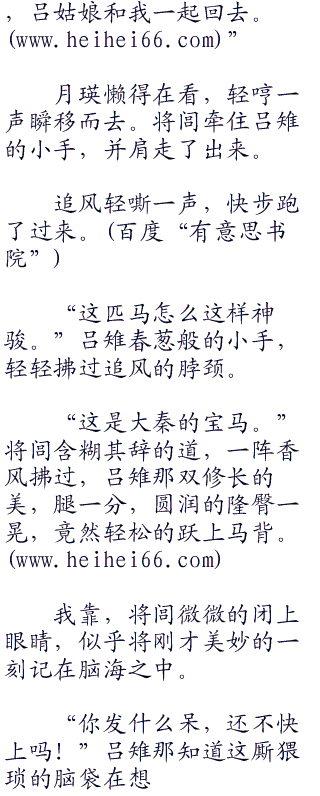 ，吕姑娘和我一起回去。
(www.heihei66.com)”
月瑛懒得在看，轻哼一
声瞬移而去。将闾牵住吕雉
的小手，并肩走了出来。
追风轻嘶一声，快步跑
了过来。(百度“有意思书
院”)
“这匹马怎么这样神
骏。”吕雉春葱般的小手，
轻轻拂过追风的脖颈。
“这是大秦的宝马。”
将闾含糊其辞的道，一阵香
风拂过，吕雉那双修长的
美，腿一分，圆润的隆臀一
晃，竟然轻松的跃上马背。
(www.heihei66.com)
我靠，将闾微微的闭上
眼睛，似乎将刚才美妙的一
刻记在脑海之中。
“你发什么呆，还不快
上吗！”吕雉那知道这厮猥
琐的脑袋在想